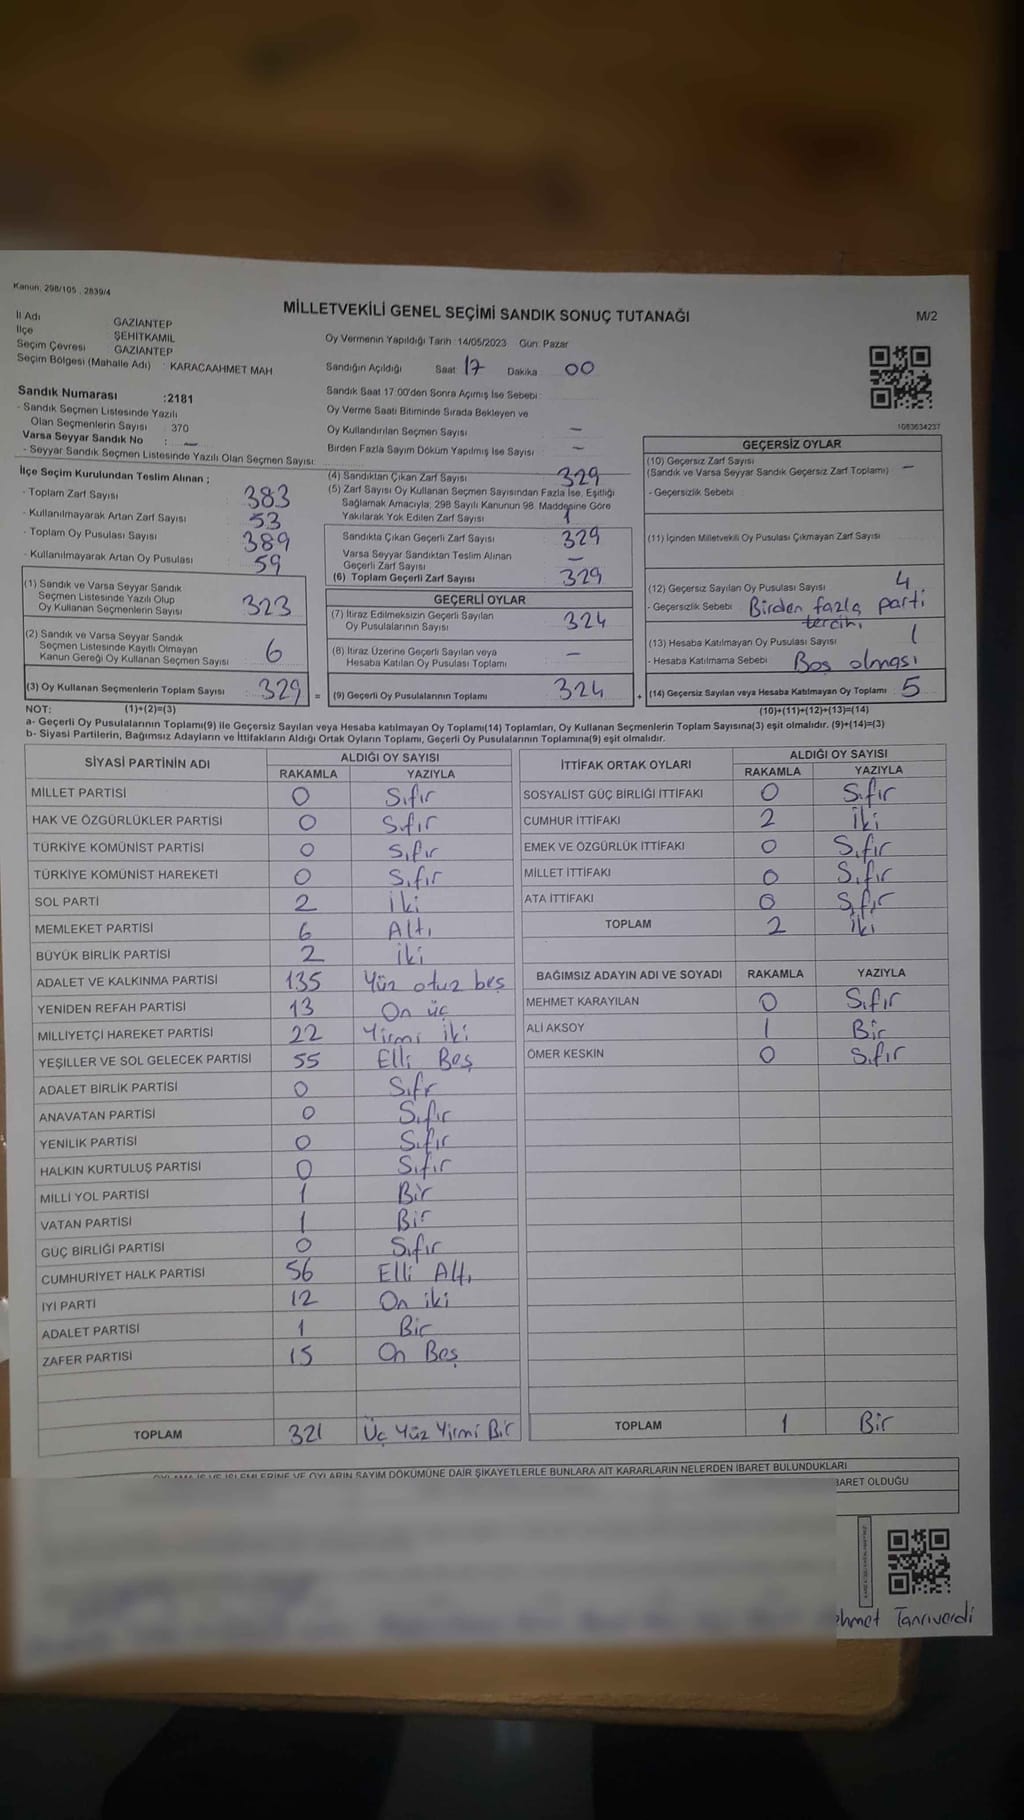 Kanun: 298/105 , 2839/4
MİLLETVEKİLİ GENEL SEÇİMİ SANDIK SONUÇ TUTANAĞI
M/2
İl Adı GAZİANTEP
İlçe ŞEHİTKAMİL
Seçim Çevresi GAZİANTEP
Seçim Bölgesi (Mahalle Adı) : KARACAAHMET MAH
Oy Vermenin Yapıldığı Tarih :14/05/2023 Gün: Pazar
Sandığın Açıldığı Saat 17 Dakika 00
Sandık Numarası :2181
- Sandık Seçmen Listesinde Yazılı
Olan Seçmenlerin Sayısı : 370
Varsa Seyyar Sandık No : —
- Seyyar Sandık Seçmen Listesinde Yazılı Olan Seçmen Sayısı:
Sandık Saat 17:00'den Sonra Açımış İse Sebebi :
Oy Verme Saati Bitiminde Sırada Bekleyen ve
Oy Kullandırılan Seçmen Sayısı —
Birden Fazla Sayım Döküm Yapılmış İse Sayısı —
1083634237
İlçe Seçim Kurulundan Teslim Alınan ;
- Toplam Zarf Sayısı 383
- Kullanılmayarak Artan Zarf Sayısı 53
- Toplam Oy Pusulası Sayısı 389
- Kullanılmayarak Artan Oy Pusulası 59
(1) Sandık ve Varsa Seyyar Sandık
Seçmen Listesinde Yazılı Olup
Oy Kullanan Seçmenlerin Sayısı 323
(2) Sandık ve Varsa Seyyar Sandık
Seçmen Listesinde Kayıtlı Olmayan
Kanun Gereği Oy Kullanan Seçmen Sayısı 6
(3) Oy Kullanan Seçmenlerin Toplam Sayısı 329 =
(4) Sandıktan Çıkan Zarf Sayısı 329
(5) Zarf Sayısı Oy Kullanan Seçmen Sayısından Fazla İse, Eşitliği
Sağlamak Amacıyla; 298 Sayılı Kanunun 98. Maddesine Göre
Yakılarak Yok Edilen Zarf Sayısı 1
Sandıkta Çıkan Geçerli Zarf Sayısı 329
Varsa Seyyar Sandıktan Teslim Alınan
Geçerli Zarf Sayısı —
(6) Toplam Geçerli Zarf Sayısı 329
GEÇERLİ OYLAR
(7) İtiraz Edilmeksizin Geçerli Sayılan
Oy Pusulalarının Sayısı 324
(8) İtiraz Üzerine Geçerli Sayılan veya
Hesaba Katılan Oy Pusulası Toplamı —
(9) Geçerli Oy Pusulalarının Toplamı 324 +
GEÇERSİZ OYLAR
(10) Geçersiz Zarf Sayısı
(Sandık ve Varsa Seyyar Sandık Geçersiz Zarf Toplamı) —
- Geçersizlik Sebebi :
(11) İçinden Milletvekili Oy Pusulası Çıkmayan Zarf Sayısı
(12) Geçersiz Sayılan Oy Pusulası Sayısı 4
- Geçersizlik Sebebi Birden fazla parti
tercihi
(13) Hesaba Katılmayan Oy Pusulası Sayısı 1
- Hesaba Katılmama Sebebi Boş olması
(14) Geçersiz Sayılan veya Hesaba Katılmayan Oy Toplamı : 5
NOT: (1)+(2)=(3)
(10)+(11)+(12)+(13)=(14)
a- Geçerli Oy Pusulalarının Toplamı(9) ile Geçersiz Sayılan veya Hesaba katılmayan Oy Toplamı(14) Toplamları, Oy Kullanan Seçmenlerin Toplam Sayısına(3) eşit olmalıdır. (9)+(14)=(3)
b- Siyasi Partilerin, Bağımsız Adayların ve İttifakların Aldığı Ortak Oyların Toplamı, Geçerli Oy Pusulalarının Toplamına(9) eşit olmalıdır.
SİYASİ PARTİNİN ADI ALDIĞI OY SAYISI
RAKAMLA YAZIYLA
MİLLET PARTİSİ 0 Sıfır
HAK VE ÖZGÜRLÜKLER PARTİSİ 0 Sıfır
TÜRKİYE KOMÜNİST PARTİSİ 0 Sıfır
TÜRKİYE KOMÜNİST HAREKETİ 0 Sıfır
SOL PARTİ 2 iki
MEMLEKET PARTİSİ 6 Altı
BÜYÜK BİRLİK PARTİSİ 2 iki
ADALET VE KALKINMA PARTİSİ 135 Yüz otuz beş
YENİDEN REFAH PARTİSİ 13 On üç
MİLLİYETÇİ HAREKET PARTİSİ 22 Yirmi iki
YEŞİLLER VE SOL GELECEK PARTİSİ 55 Elli Beş
ADALET BİRLİK PARTİSİ 0 Sıfr
ANAVATAN PARTİSİ 0 Sıfır
YENİLİK PARTİSİ 0 Sıfır
HALKIN KURTULUŞ PARTİSİ 0 Sıfır
MİLLİ YOL PARTİSİ 1 Bir
VATAN PARTİSİ 1 Bir
GÜÇ BİRLİĞİ PARTİSİ 0 Sıfır
CUMHURİYET HALK PARTİSİ 56 Elli Altı
İYİ PARTİ 12 On iki
ADALET PARTİSİ 1 Bir
ZAFER PARTİSİ 15 On Beş
TOPLAM 321 Üç Yüz Yirmi Bir
İTTİFAK ORTAK OYLARI ALDIĞI OY SAYISI
RAKAMLA YAZIYLA
SOSYALİST GÜÇ BİRLİĞİ İTTİFAKI 0 Sıfır
CUMHUR İTTİFAKI 2 iki
EMEK VE ÖZGÜRLÜK İTTİFAKI 0 Sıfır
MİLLET İTTİFAKI 0 Sıfır
ATA İTTİFAKI 0 Sıfır
TOPLAM 2 iki
BAĞIMSIZ ADAYIN ADI VE SOYADI RAKAMLA YAZIYLA
MEHMET KARAYILAN 0 Sıfır
ALİ AKSOY 1 Bir
ÖMER KESKİN 0 Sıfır
TOPLAM 1 Bir
OYLAMA İŞ VE İŞLEMLERİNE VE OYLARIN SAYIM DÖKÜMÜNE DAİR ŞİKAYETLERLE BUNLARA AİT KARARLARIN NELERDEN İBARET BULUNDUKLARI
BARET OLDUĞU
hmet Tanrıverdi